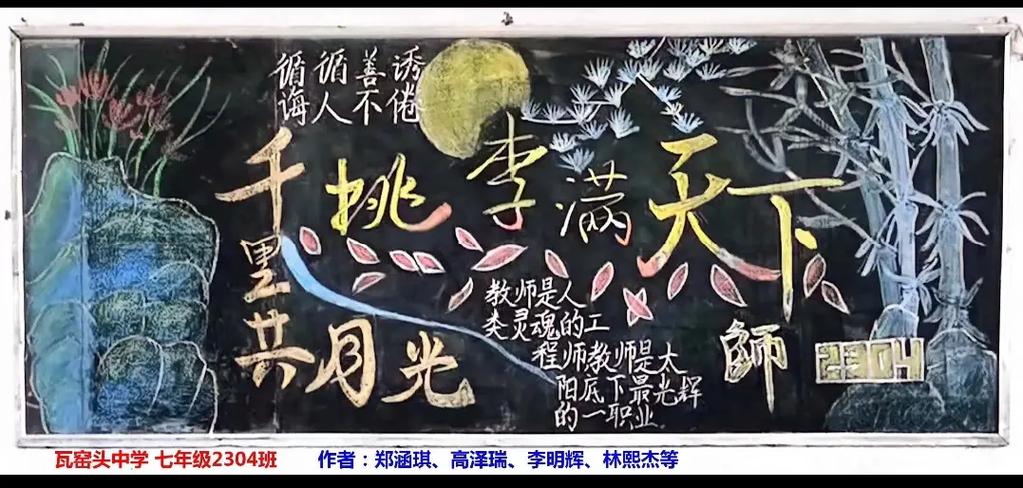 循循善诱
诲人不倦
桃李满天下
千里共月光
教师是人
类灵魂的工
程师教师是太
阳底下最光辉
的一职业
師
2304
瓦窑头中学 七年级2304班 作者：郑涵琪、高泽瑞、李明辉、林熙杰等